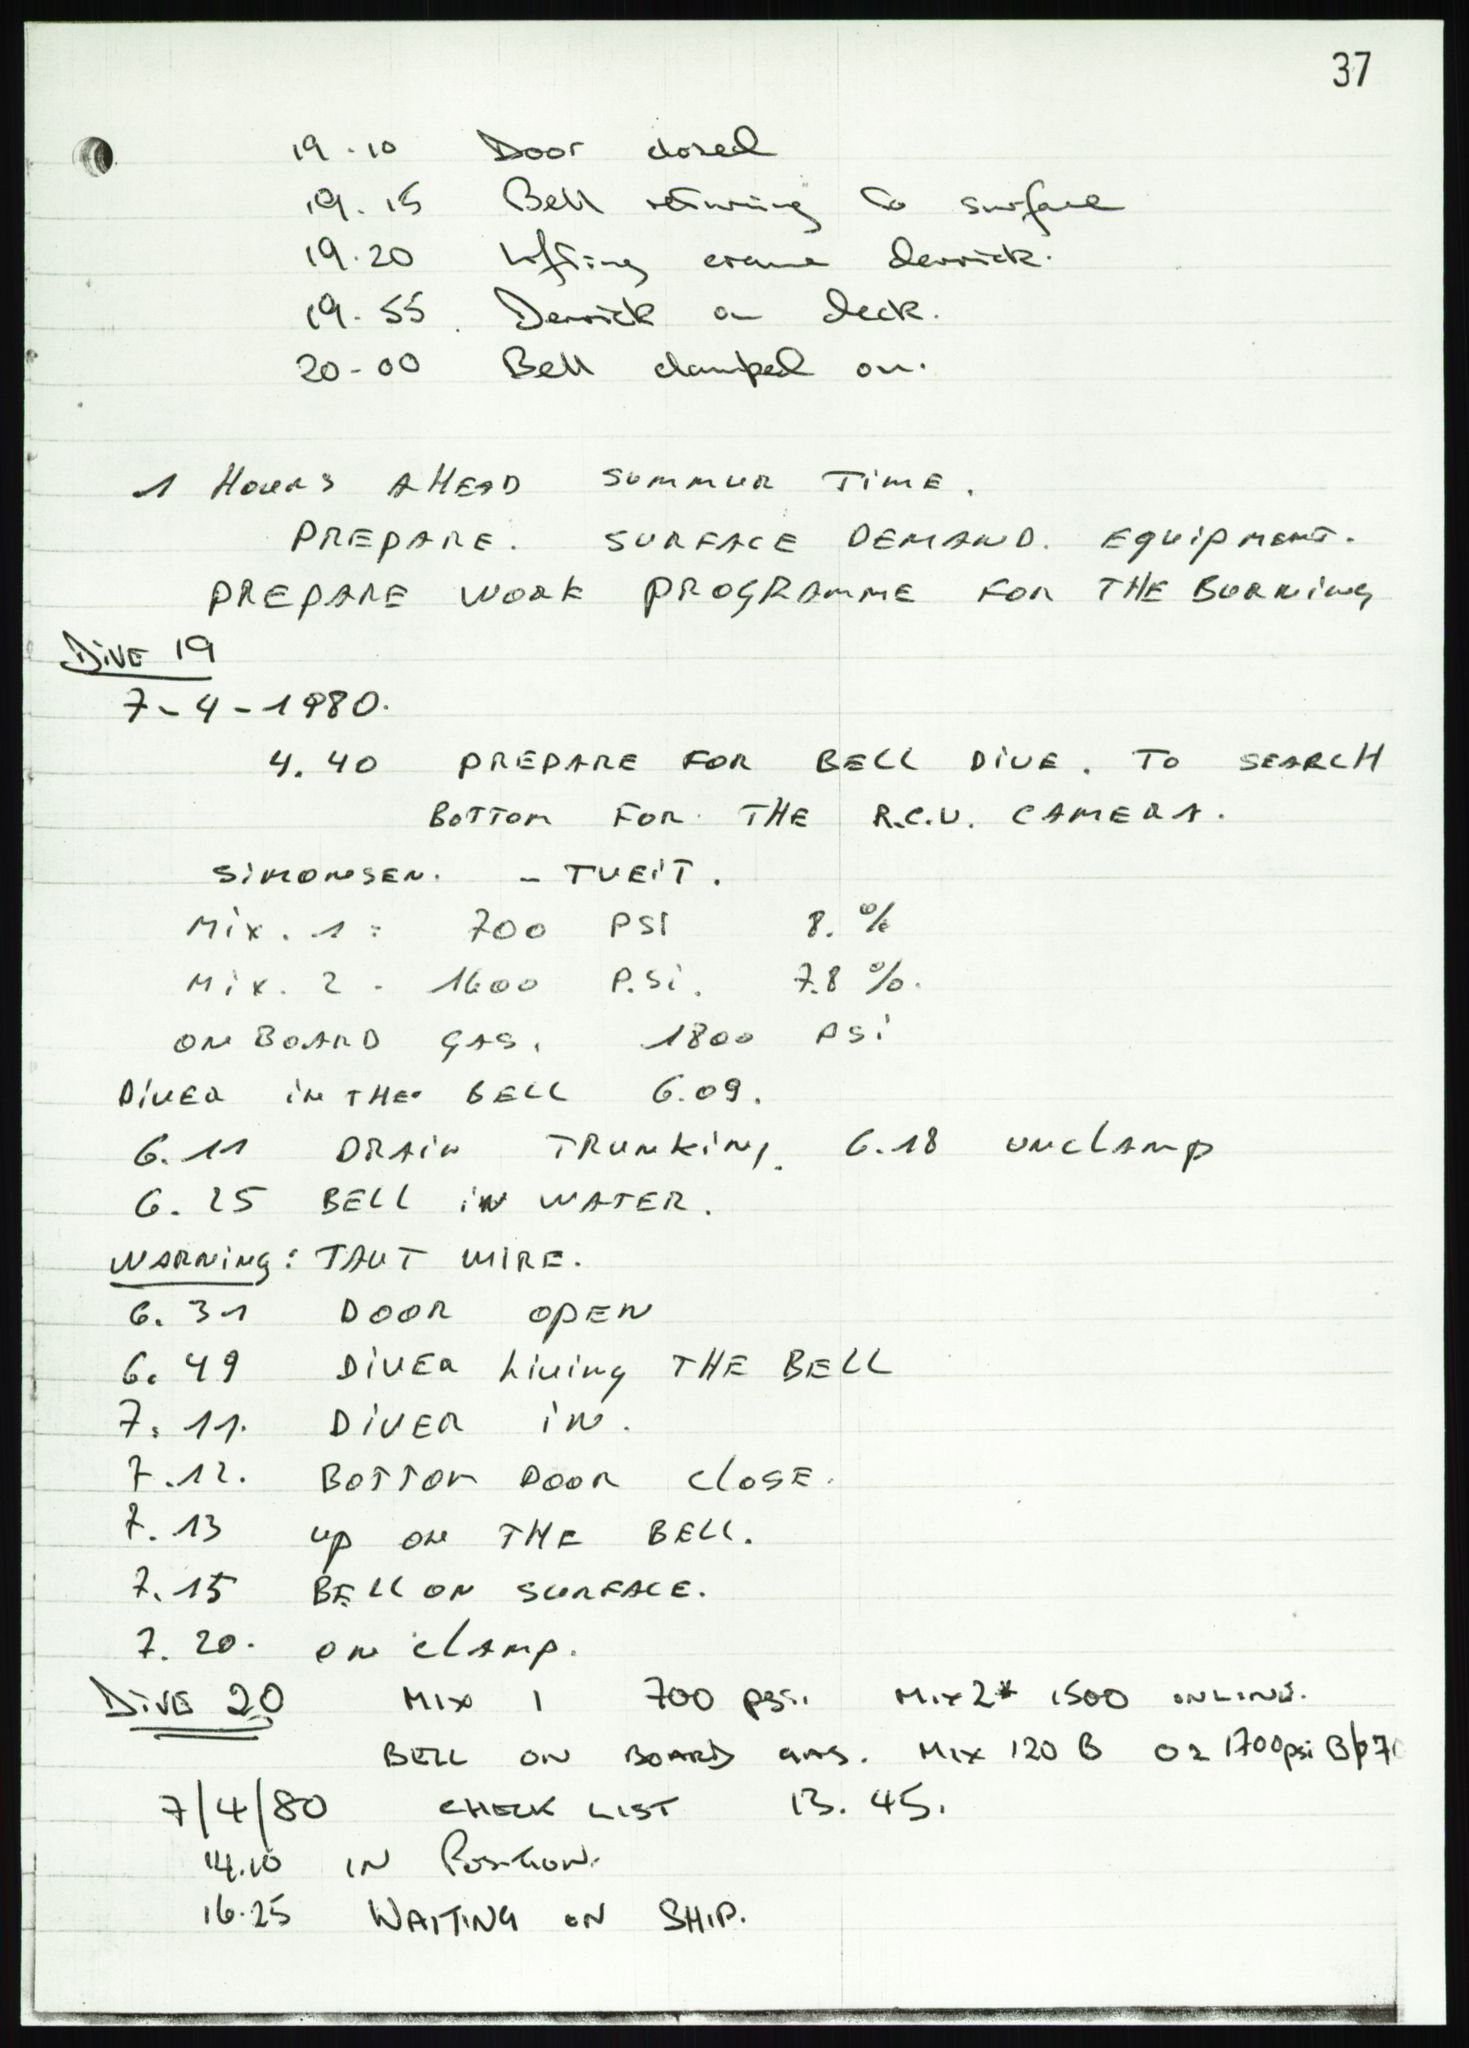 37
19.10 Door closed
19.15 Bell returning to surface
19.20 Lifting crane derrick.
19.55 Derrick on deck.
20-00 Bell clamped on.
1 HOURS AHEAD SUMMUR TIME.
PREPARE. SURFACE DEMAND. EQUIPMENT.
PREPARE WORK PROGRAMME FOR THE BURNING
DIVE 19
7-4-1980.
4.40 PREPARE FOR BELL DIVE. TO SEARCH
BOTTOM FOR THE R.C.V. CAMERA.
SIMONSEN. - TVEIT.
MIX. 1: 700 PSI 8. %
MIX. 2 - 1600 P.SI. 7.8 %.
ON BOARD GAS. 1800 PSI
DIVER IN THE BELL 6.09.
6.11 DRAIN TRUNKING. 6.18 UNCLAMP
6.25 BELL IN WATER.
WARNING: TAUT WIRE.
6.31 DOOR OPEN
6.49 DIVER LIVING THE BELL
7.11. DIVER IN.
7.12. BOTTOM DOOR CLOSE.
7.13 UP ON THE BELL.
7.15 BELL ON SURFACE.
7.20. ON CLAMP.
DIVE 20 MIX 1 700 psi. MIX 2* 1500 ONLINE.
BELL ON BOARD GAS. MIX 120 B O2 1700psi B/P 70
7/4/80 CHECK LIST 13.45.
14.10 IN POSITION.
16.25 WAITING ON SHIP.